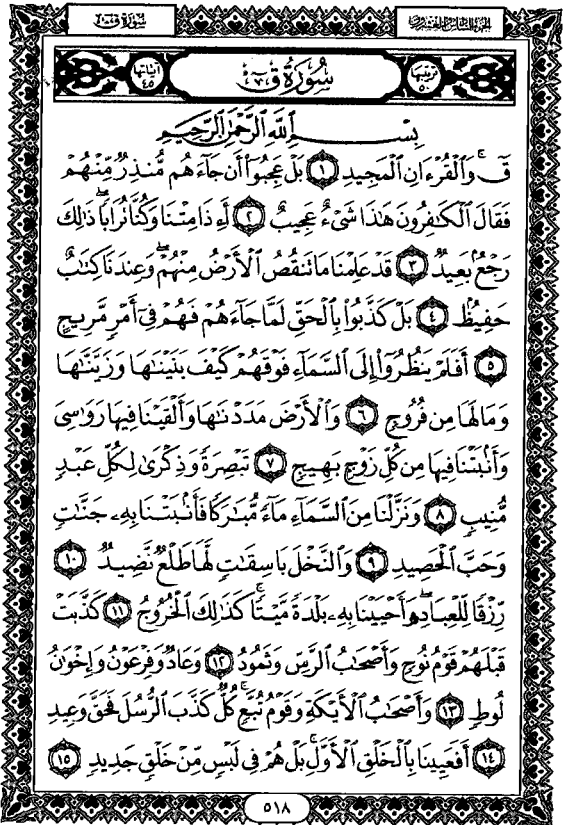 سُورَةُ قٓ
الجزء السادس والعشرون
ترتيبها ٥٠
سُورَةُ قٓ
آياتها ٤٥
بِسْمِ ٱللَّهِ ٱلرَّحْمَٰنِ ٱلرَّحِيمِ
قٓۚ وَٱلْقُرْءَانِ ٱلْمَجِيدِ ١ بَلْ عَجِبُوٓا۟ أَن جَآءَهُم مُّنذِرٌ مِّنْهُمْ
فَقَالَ ٱلْكَٰفِرُونَ هَٰذَا شَىْءٌ عَجِيبٌ ٢ أَءِذَا مِتْنَا وَكُنَّا تُرَابًاۖ ذَٰلِكَ
رَجْعٌۢ بَعِيدٌ ٣ قَدْ عَلِمْنَا مَا تَنقُصُ ٱلْأَرْضُ مِنْهُمْۖ وَعِندَنَا كِتَٰبٌ
حَفِيظٌۢ ٤ بَلْ كَذَّبُوا۟ بِٱلْحَقِّ لَمَّا جَآءَهُمْ فَهُمْ فِىٓ أَمْرٍ مَّرِيجٍ
٥ أَفَلَمْ يَنظُرُوٓا۟ إِلَى ٱلسَّمَآءِ فَوْقَهُمْ كَيْفَ بَنَيْنَٰهَا وَزَيَّنَّٰهَا
وَمَا لَهَا مِن فُرُوجٍ ٦ وَٱلْأَرْضَ مَدَدْنَٰهَا وَأَلْقَيْنَا فِيهَا رَوَٰسِىَ
وَأَنۢبَتْنَا فِيهَا مِن كُلِّ زَوْجٍۭ بَهِيجٍ ٧ تَبْصِرَةً وَذِكْرَىٰ لِكُلِّ عَبْدٍ
مُّنِيبٍ ٨ وَنَزَّلْنَا مِنَ ٱلسَّمَآءِ مَآءً مُّبَٰرَكًا فَأَنۢبَتْنَا بِهِۦ جَنَّٰتٍ
وَحَبَّ ٱلْحَصِيدِ ٩ وَٱلنَّخْلَ بَاسِقَٰتٍ لَّهَا طَلْعٌ نَّضِيدٌ ١٠
رِّزْقًا لِّلْعِبَادِۖ وَأَحْيَيْنَا بِهِۦ بَلْدَةً مَّيْتًاۚ كَذَٰلِكَ ٱلْخُرُوجُ ١١ كَذَّبَتْ
قَبْلَهُمْ قَوْمُ نُوحٍ وَأَصْحَٰبُ ٱلرَّسِّ وَثَمُودُ ١٢ وَعَادٌ وَفِرْعَوْنُ وَإِخْوَٰنُ
لُوطٍ ١٣ وَأَصْحَٰبُ ٱلْأَيْكَةِ وَقَوْمُ تُبَّعٍۚ كُلٌّ كَذَّبَ ٱلرُّسُلَ فَحَقَّ وَعِيدِ
١٤ أَفَعَيِينَا بِٱلْخَلْقِ ٱلْأَوَّلِۚ بَلْ هُمْ فِى لَبْسٍ مِّنْ خَلْقٍ جَدِيدٍ ١٥
٥١٨